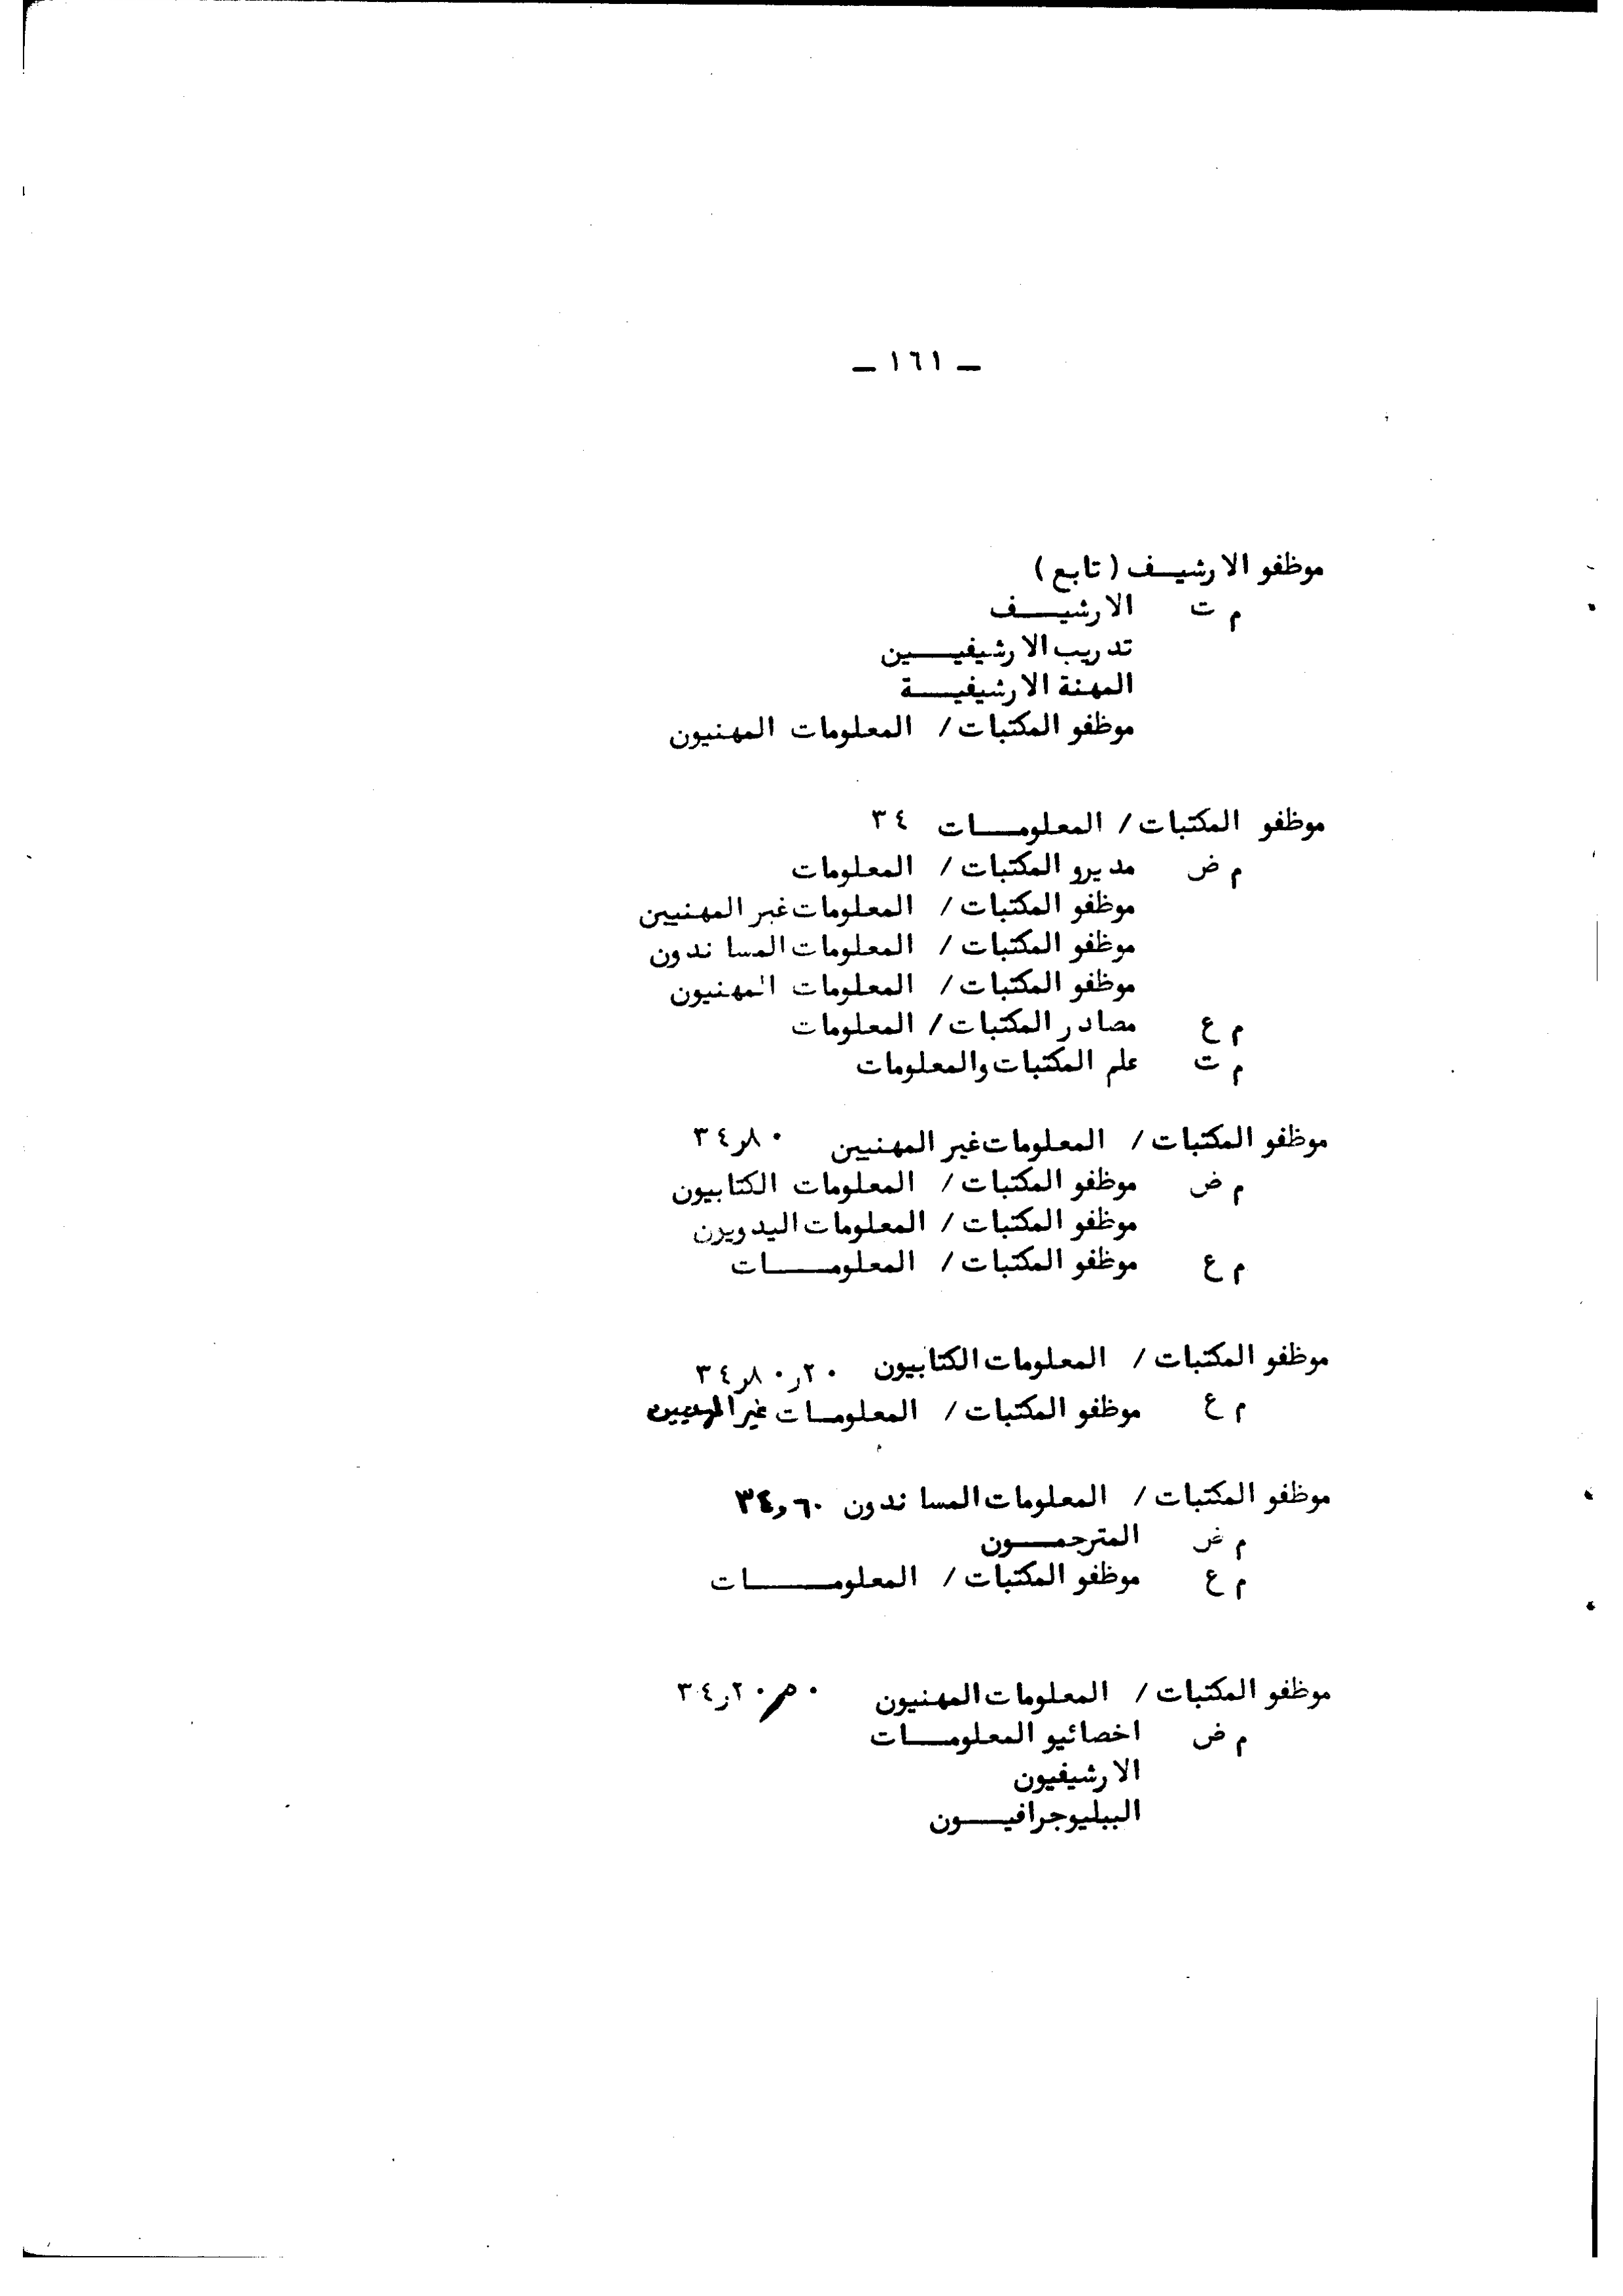 — ١٦١ —
موظفو الارشيف (تابع)
م ت الارشيف
تدريب الارشيفيين
المهنة الارشيفية
موظفو المكتبات / المعلومات المهنيون
موظفو المكتبات / المعلومات ٣٤
م ض مديرو المكتبات / المعلومات
موظفو المكتبات / المعلومات غير المهنيين
موظفو المكتبات / المعلومات المساندون
موظفو المكتبات / المعلومات المهنيون
م ع مصادر المكتبات / المعلومات
م ت علم المكتبات والمعلومات
موظفو المكتبات / المعلومات غير المهنيين ٣٤ر٨٠
م ض موظفو المكتبات / المعلومات الكتابيون
موظفو المكتبات / المعلومات اليدويون
م ع موظفو المكتبات / المعلومات
موظفو المكتبات / المعلومات الكتابيون ٣٤ر٨٠ر٢٠
م ع موظفو المكتبات / المعلومات غير المهنيين
موظفو المكتبات / المعلومات المساندون ٣٤ر٦٠
م ض المترجمون
م ع موظفو المكتبات / المعلومات
موظفو المكتبات / المعلومات المهنيون ٣٤ر٢٠ر٥٠
م ض اخصائيو المعلومات
الارشيفيون
الببليوجرافيون